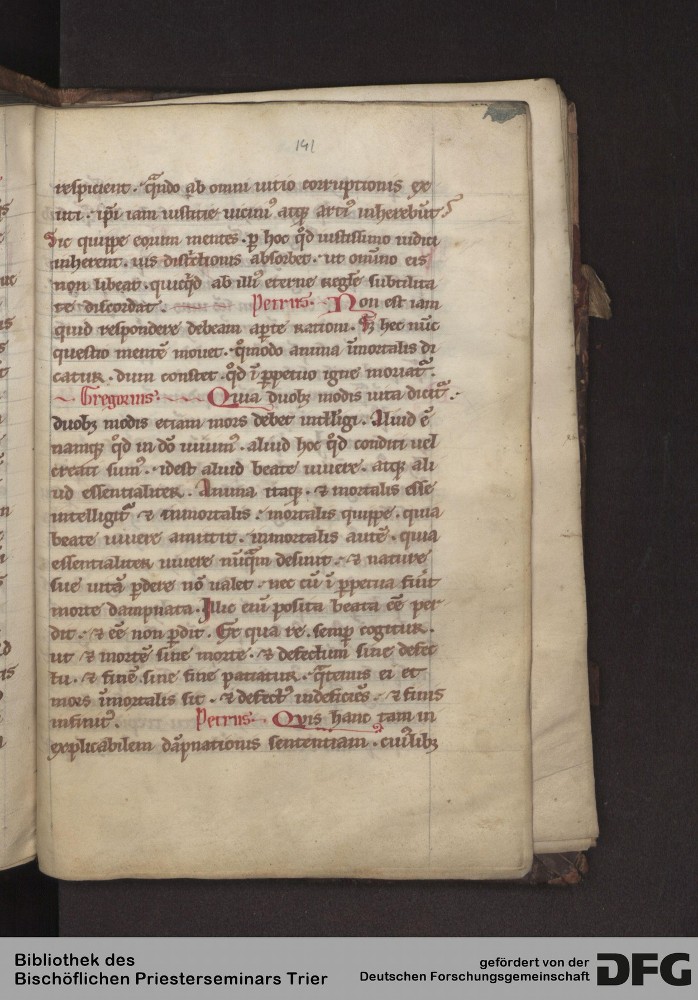 141
respicient. q̃ndo ab omni uitio corruptionis ex
uti. ip̃i iam iustitie uicini⁹ atq; arti⁹ inherebũt?
Sic quippe eorum mentes. p̱ hoc q̃d iustissimo iudici
inherent. uis distr̃ctionis absorbet. ut om̃ino eis
non libeat. quicq̃d ab illi⁹ eterne regl̃e subtilita
te discordat. Petrus. Non est iam
quid respondere debeam aperte rationi. S; hec nũc
questio mentẽ mouet. q̃modo anima ĩmortalis di
catur. dum constet. q̃d ĩ p̱petuo igne moriat᷑.
Gregorius. Quia duob; modis uita dicit᷑.
duob; modis etiam mors debet intelligi. Aliud ẽ
namq; q̃d in dõ uiuim⁹. aliud hoc q̃d conditi uel
creati sum⁹. idest aliud beate uiuere. atq; ali
ud essentialiter. Anima itaq;. ⁊ mortalis esse
intelligit᷑ ⁊ inmortalis. mortalis quippe. quia
beate uiuere amittit. inmortalis autẽ. quia
essentialiter uiuere nũq̃m desinit. ⁊ nature
sue uitã p̱dere nõ ualet. nec cũ ĩ p̱petua fũit
morte dampnata. Illic eni᷑ posita beata eẽ per
dit. ⁊ eẽ non p̱dit. Ex qua re semp̱ cogitur.
ut ⁊ mortẽ sine morte. ⁊ defectum sine defec
tu. ⁊ finẽ sine fine patiatur. q̃tenus ei et
mors ĩmortalis sit. ⁊ defect⁹ indeficiẽs. ⁊ finis
infinit⁹. Petrus. Quis hanc tam in
explicabilem dãpnationis sententiam. cui⁹lib;
Bibliothek des
Bischöflichen Priesterseminars Trier
gefördert von der
Deutschen Forschungsgemeinschaft
DFG